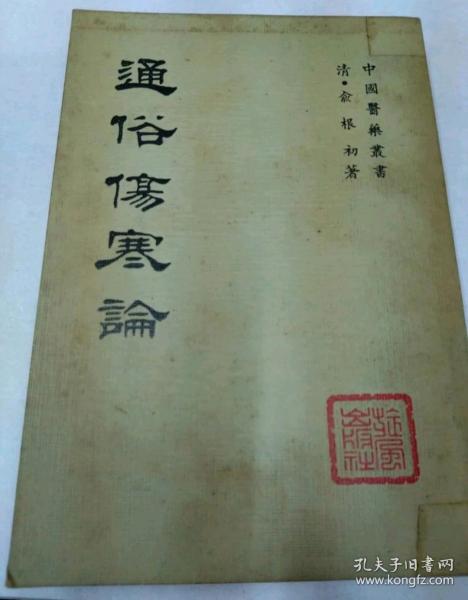 中國醫藥叢書
清·俞根初著
通俗傷寒論
旋風出版社
孔夫子旧书网
www.kongfz.com